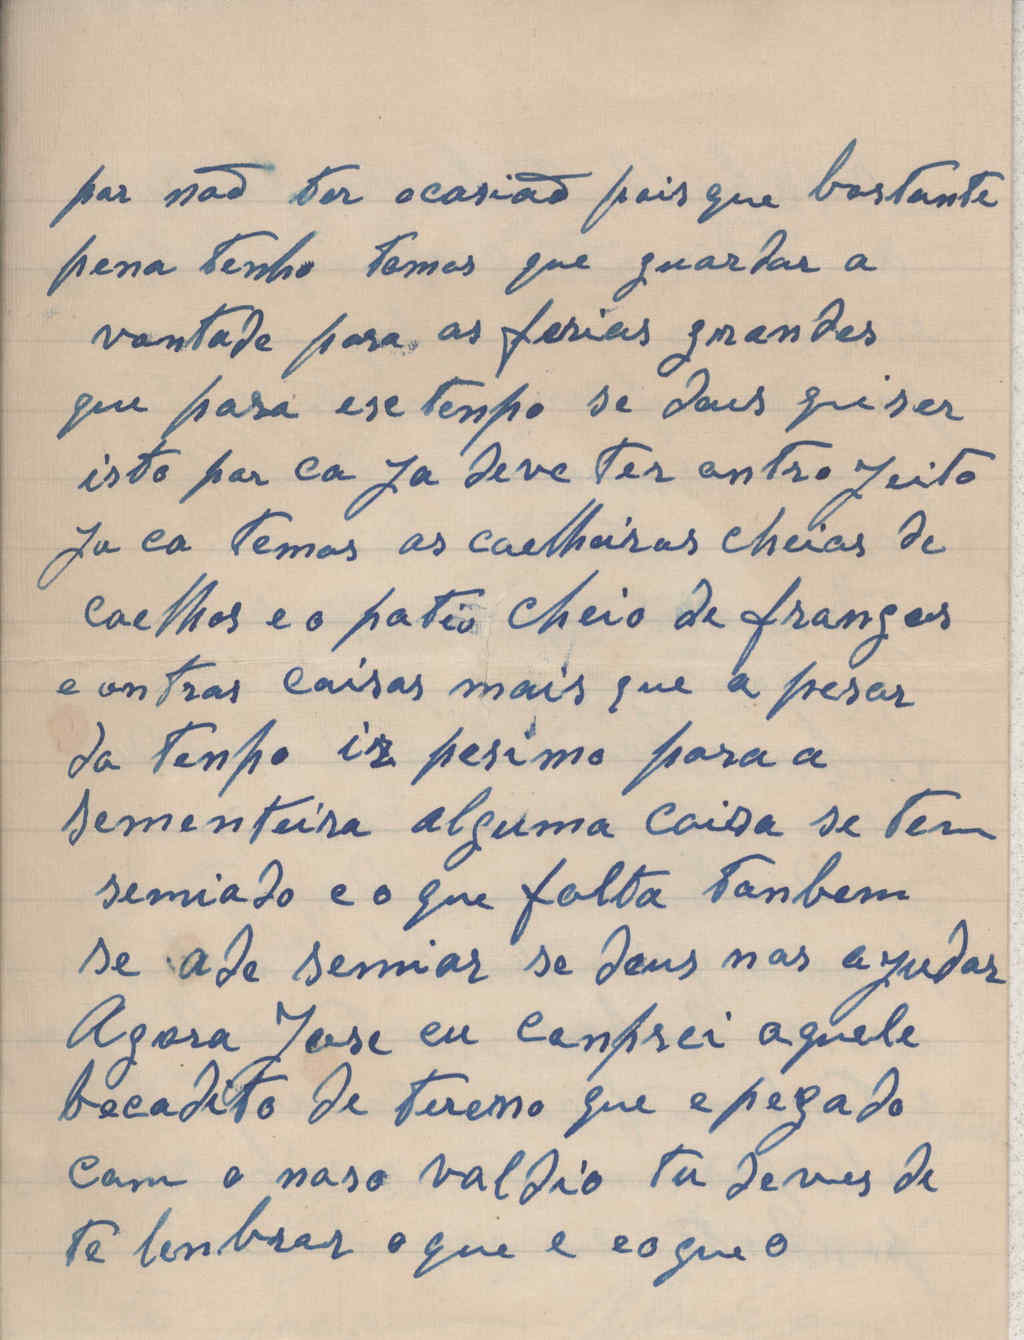 por não ter ocasião pois que bastante
pena tenho temos que guardar a
vontade para as ferias grandes
que para ese tenpo se deus quiser
isto por ca ja deve ter outro jeito
ja ca temos as coelheiras cheias de
coelhos e o patio cheio de frangos
e outras coisas mais que a pesar
do tenpo ir pesimo para a
sementeira alguma coisa se tem
semiado e o que falta tanbem
se ade semiar se deus nos ajudar
Agora Jose eu conprei aquele
bocadito de tereno que e pegado
com o noso valdio tu deves de
te lenbrar o que e e o que o